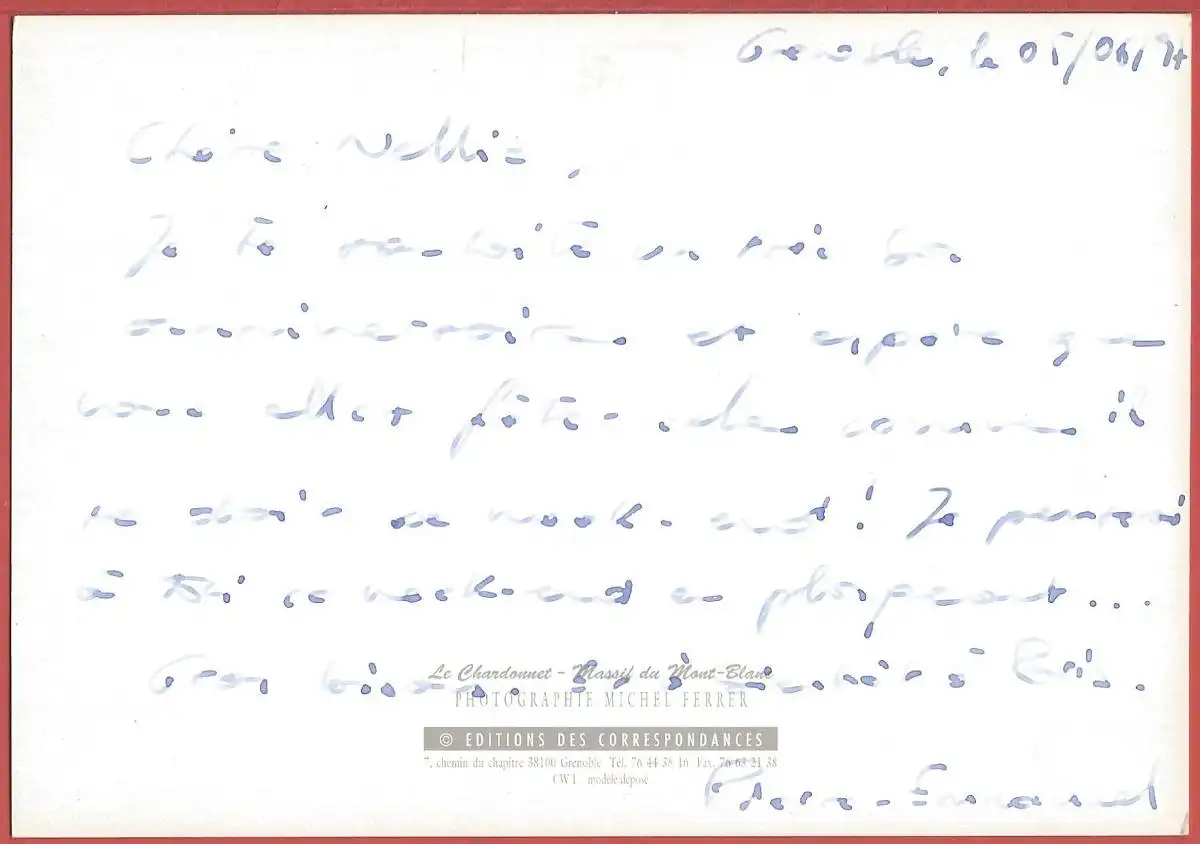 Grenoble, le 05/04/97
Chère Nellie,
Je te souhaite un très bon
anniversaire et espère que
vous allez fêter cela comme il
se doit ce week-end! Je penserai
à toi ce week-end en plongeant...
Gros bisous.
Le Chardonnet - Massif du Mont-Blanc
PHOTOGRAPHIE MICHEL FERRER
© EDITIONS DES CORRESPONDANCES
7, chemin du chapitre 38100 Grenoble Tél. 76 44 38 16 Fax. 76 63 21 38
CW1 modèle déposé
Pierre-Emmanuel